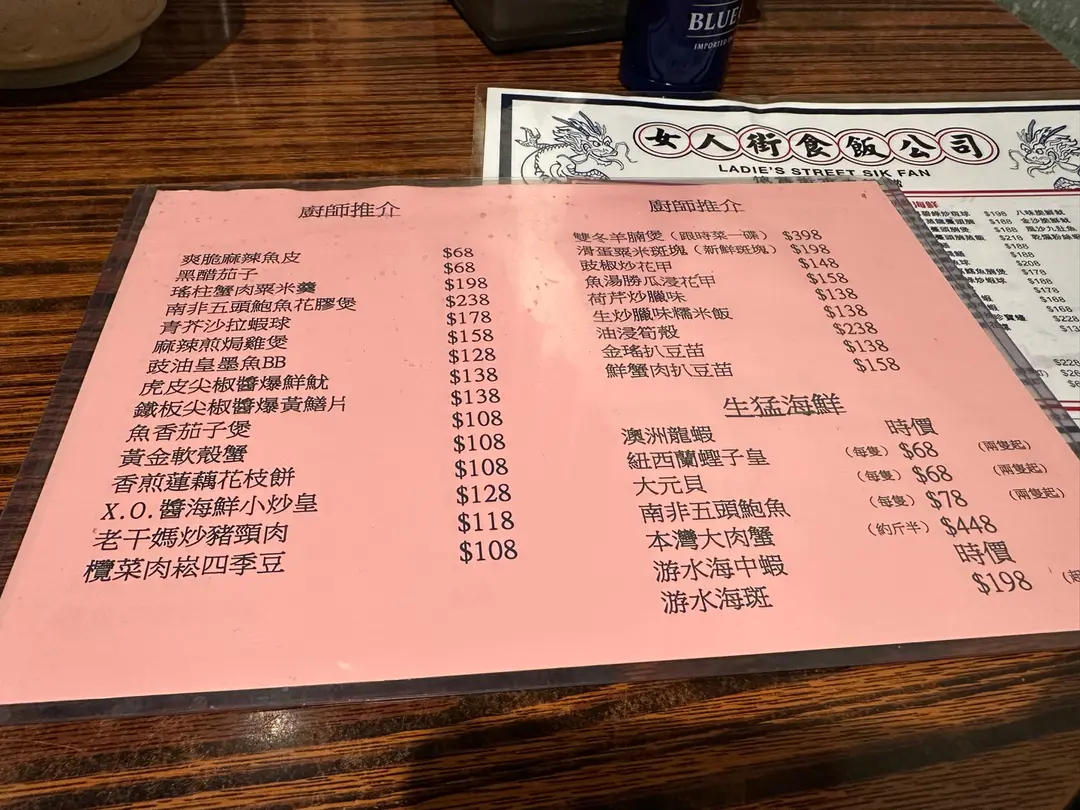 BLUE
IMPORTED
女人街食飯公司
LADIE'S STREET SIK FAN
廚師推介
爽脆麻辣魚皮 $68
黑醋茄子 $68
瑤柱蟹肉粟米羹 $198
南非五頭鮑魚花膠煲 $238
青芥沙拉蝦球 $178
麻辣煎焗雞煲 $158
豉油皇墨魚BB $128
虎皮尖椒醬爆鮮魷 $138
鐵板尖椒醬爆黃鱔片 $138
魚香茄子煲 $108
黃金軟殼蟹 $108
香煎蓮藕花枝餅 $108
X.O.醬海鮮小炒皇 $128
老干媽炒豬頸肉 $118
欖菜肉崧四季豆 $108
廚師推介
雙冬羊腩煲（跟時菜一碟） $398
滑蛋粟米斑塊（新鮮斑塊） $198
豉椒炒花甲 $148
魚湯勝瓜浸花甲 $158
荷芹炒臘味 $138
生炒臘味糯米飯 $138
油浸筍殼 $238
金瑤扒豆苗 $138
鮮蟹肉扒豆苗 $158
生猛海鮮
澳洲龍蝦 時價
紐西蘭蟶子皇 （每隻） $68 （兩隻起）
大元貝 （每隻） $68 （兩隻起）
南非五頭鮑魚 （每隻） $78 （兩隻起）
本灣大肉蟹 （約斤半） $448
游水海中蝦 時價
游水海斑 $198 （起